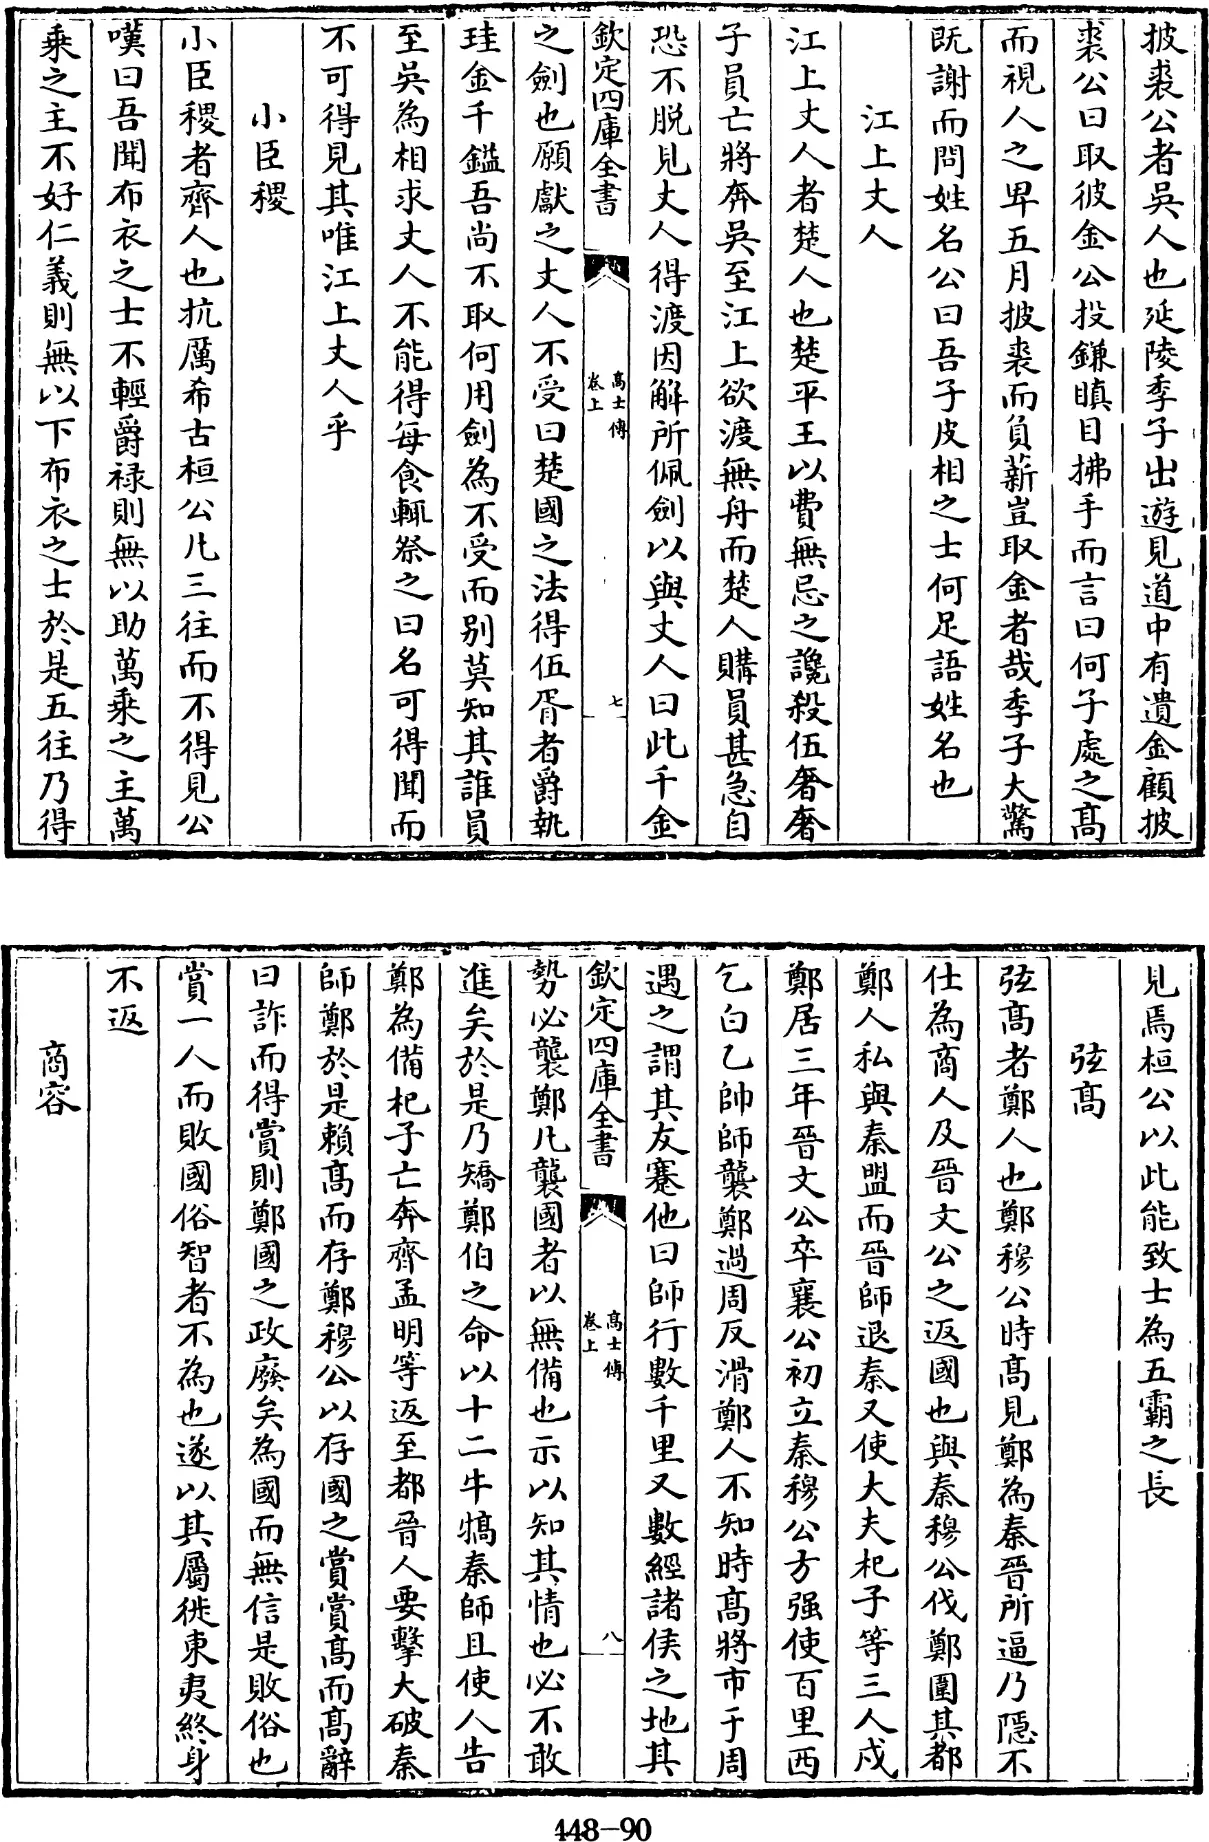 披裘公者吳人也延陵季子出遊見道中有遺金顧披
裘公曰取彼金公投鎌瞋目拂手而言曰何子處之髙
而視人之卑五月披裘而負薪豈取金者哉季子大驚
既謝而問姓名公曰吾子皮相之士何足語姓名也
江上丈人
江上丈人者楚人也楚平王以費無忌之讒殺伍奢奢
子員亡將奔吳至江上欲渡無舟而楚人購員甚急自
恐不脱見丈人得渡因解所佩劍以與丈人曰此千金
欽定四庫全書
髙士傳
卷上
七
之劍也願獻之丈人不受曰楚國之法得伍胥者爵執
珪金千鎰吾尚不取何用劍為不受而别莫知其誰員
至吳為相求丈人不能得每食輒祭之曰名可得聞而
不可得見其唯江上丈人乎
小臣稷
小臣稷者齊人也抗厲希古桓公凡三往而不得見公
嘆曰吾聞布衣之士不輕爵禄則無以助萬乘之主萬
乘之主不好仁義則無以下布衣之士於是五往乃得
見焉桓公以此能致士為五霸之長
弦髙
弦髙者鄭人也鄭穆公時髙見鄭為秦晉所逼乃隱不
仕為商人及晉文公之返國也與秦穆公伐鄭圍其都
鄭人私與秦盟而晉師退秦又使大夫杞子等三人戍
鄭居三年晉文公卒襄公初立秦穆公方强使百里西
乞白乙帥師襲鄭過周反滑鄭人不知時髙將市于周
遇之謂其友蹇他曰師行數千里又數經諸侯之地其
欽定四庫全書
髙士傳
卷上
八
勢必襲鄭凡襲國者以無備也示以知其情也必不敢
進矣於是乃矯鄭伯之命以十二牛犒秦師且使人告
鄭為備杞子亡奔齊孟明等返至都晉人要擊大破秦
師鄭於是賴髙而存鄭穆公以存國之賞賞髙而髙辭
曰詐而得賞則鄭國之政廢矣為國而無信是敗俗也
賞一人而敗國俗智者不為也遂以其屬徙東夷終身
不返
商容
448-90